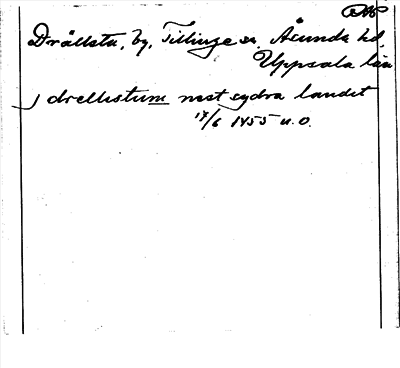 Drällsta, by, Tillinge sn. Åsunda hd,
Uppsala län
j drellistum nest sydra landet
17/6 1455 u.o.